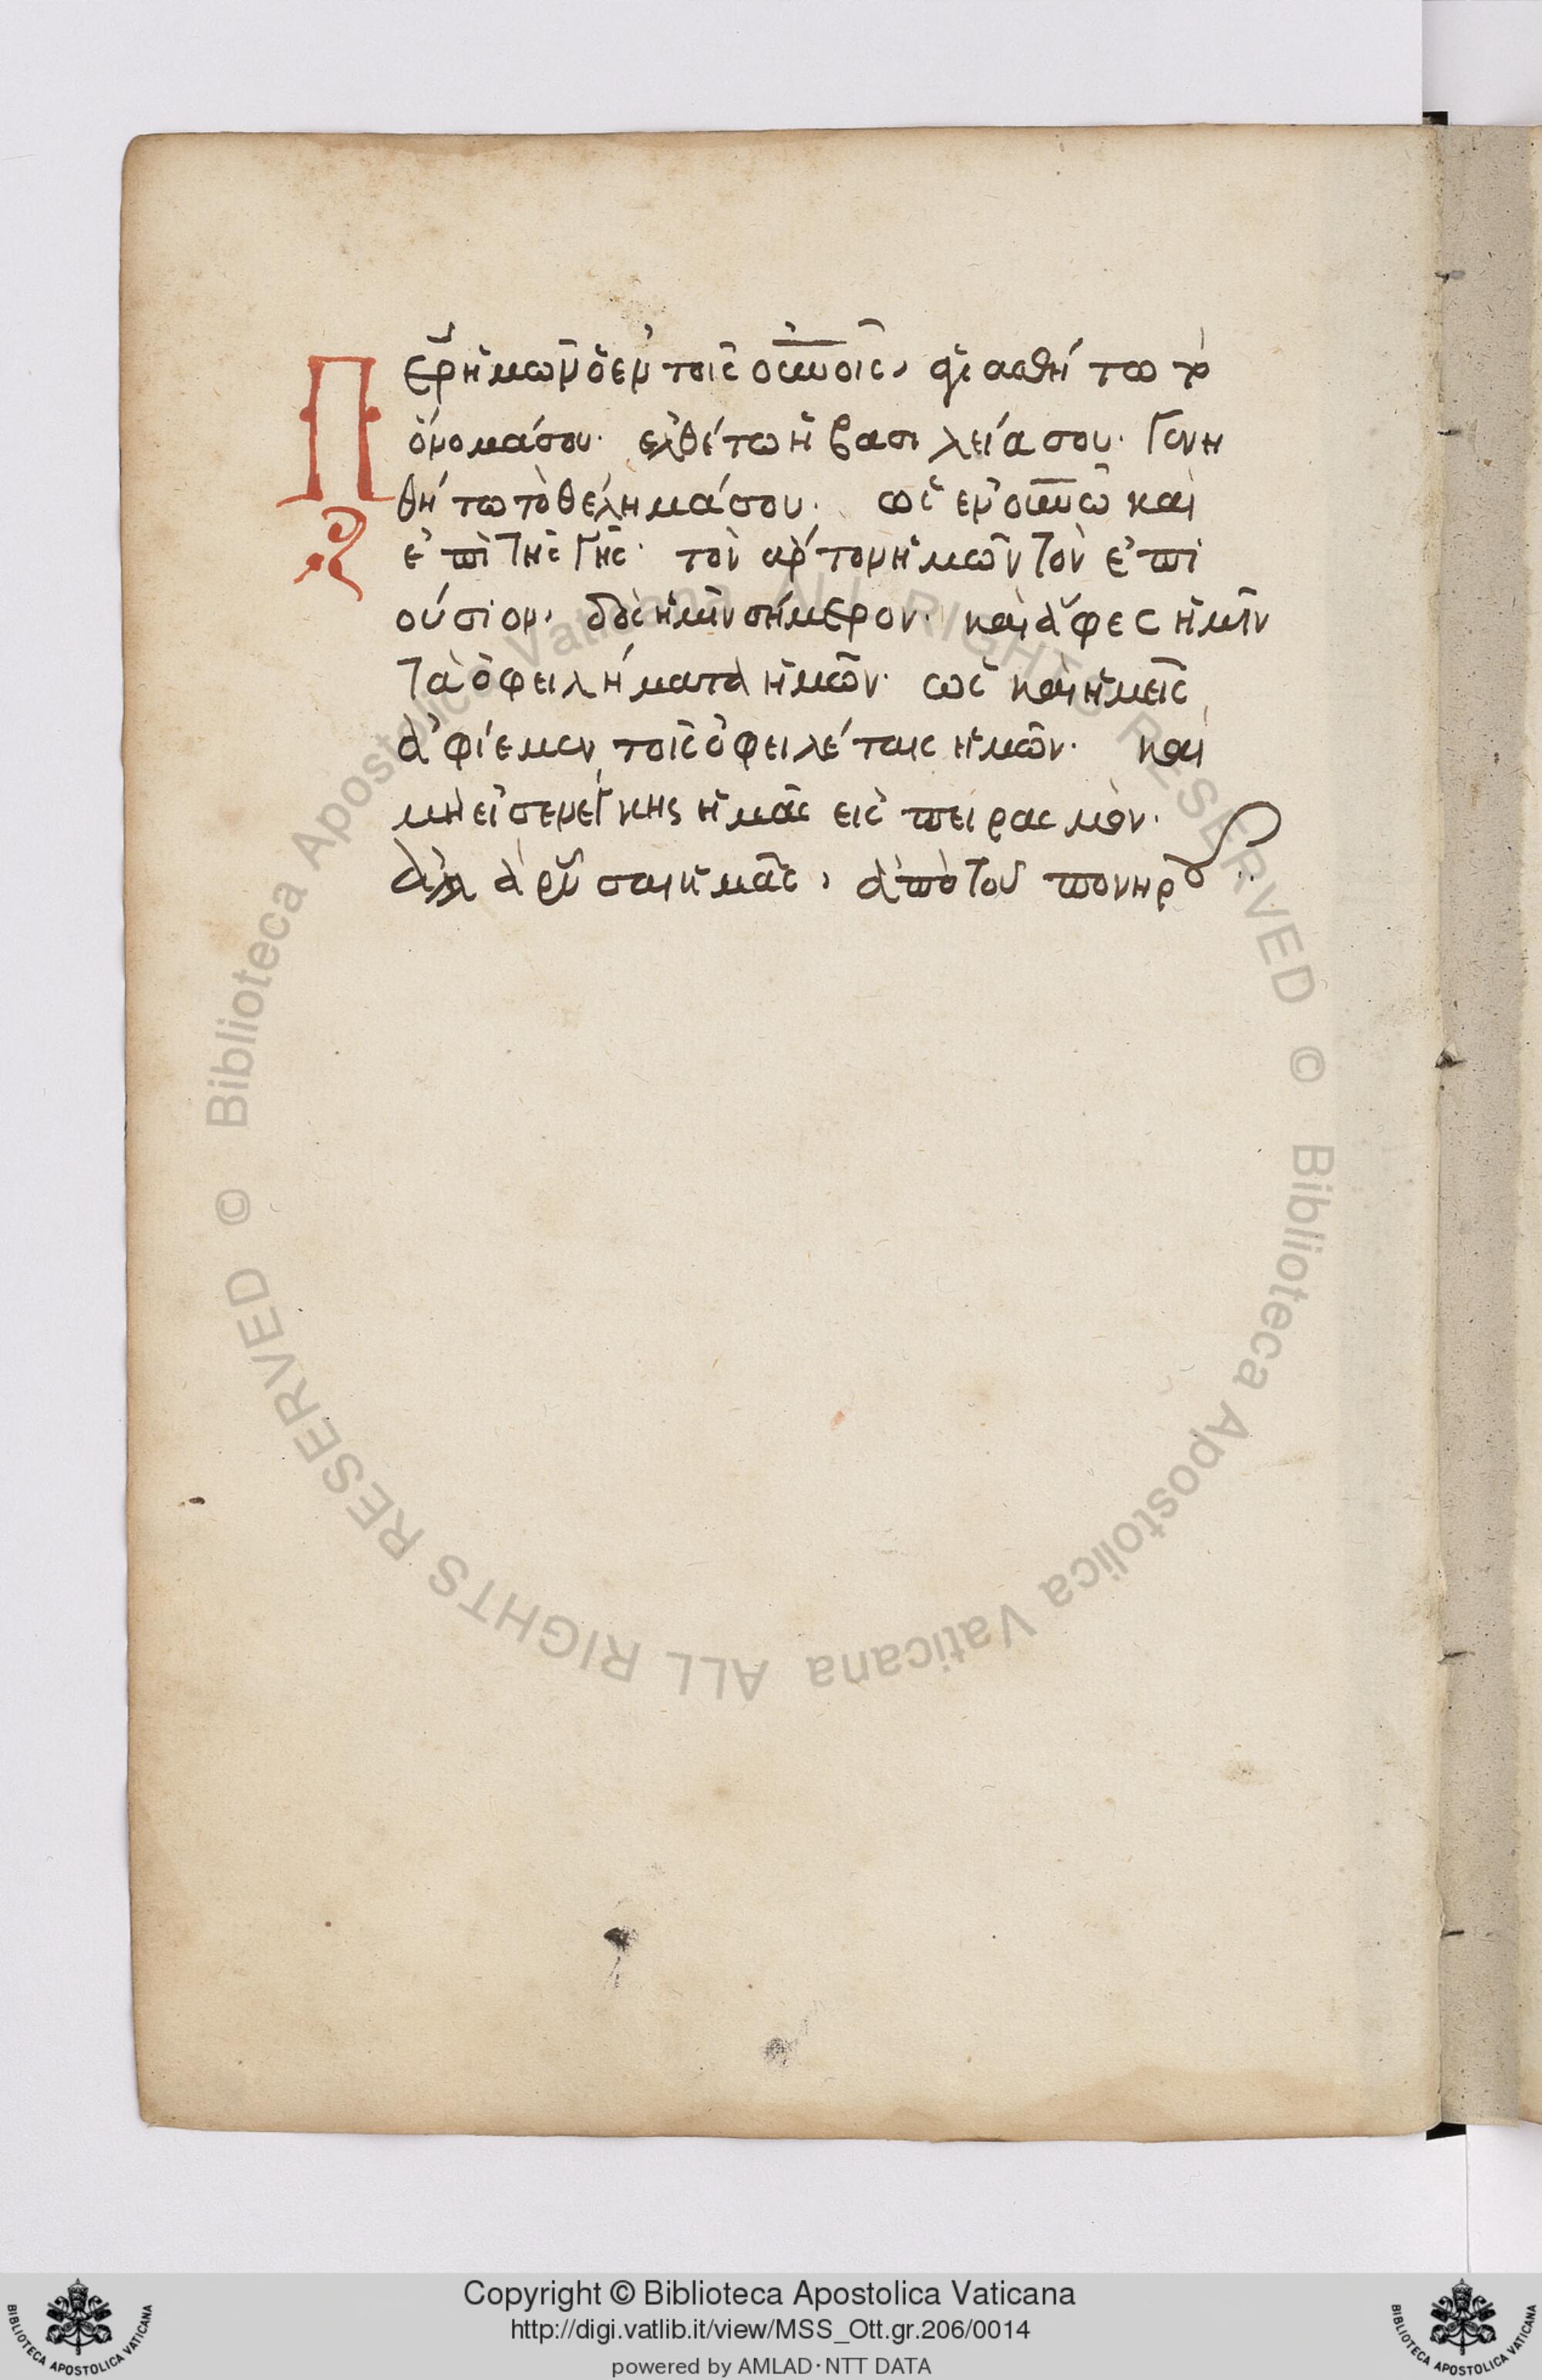 Περ ἡμῶν ὁ ἐν τοῖς οὐνοῖς, ἁγιασθήτω τὸ
ὄνομά σου· ἐλθέτω ἡ βασιλεία σου· γενη
θήτω τὸ θέλημά σου· ὡς ἐν οὐνῶ καὶ
ἐπὶ τῆς γῆς· τὸν ἄρτον ἡμῶν τὸν ἐπι
ούσιον, δὸς ἡμῖν σήμερον· καὶ ἄφες ἡμῖν
τὰ ὀφειλήματα ἡμῶν· ὡς καὶ ἡμεῖς
ἀφίεμεν τοῖς ὀφειλέταις ἡμῶν· καὶ
μὴ εἰσενέγκης ἡμᾶς εἰς πειρασμὸν·
ἀλλὰ ῥῦσαι ἡμᾶς, ἀπὸ τοῦ πονηροῦ
© Biblioteca Apostolica Vaticana ALL RIGHTS RESERVED © Biblioteca Apostolica Vaticana ALL RIGHTS RESERVED
Copyright © Biblioteca Apostolica Vaticana
http://digi.vatlib.it/view/MSS_Ott.gr.206/0014
powered by AMLAD·NTT DATA
BIBLIOTECA APOSTOLICA VATICANA
BIBLIOTECA APOSTOLICA VATICANA